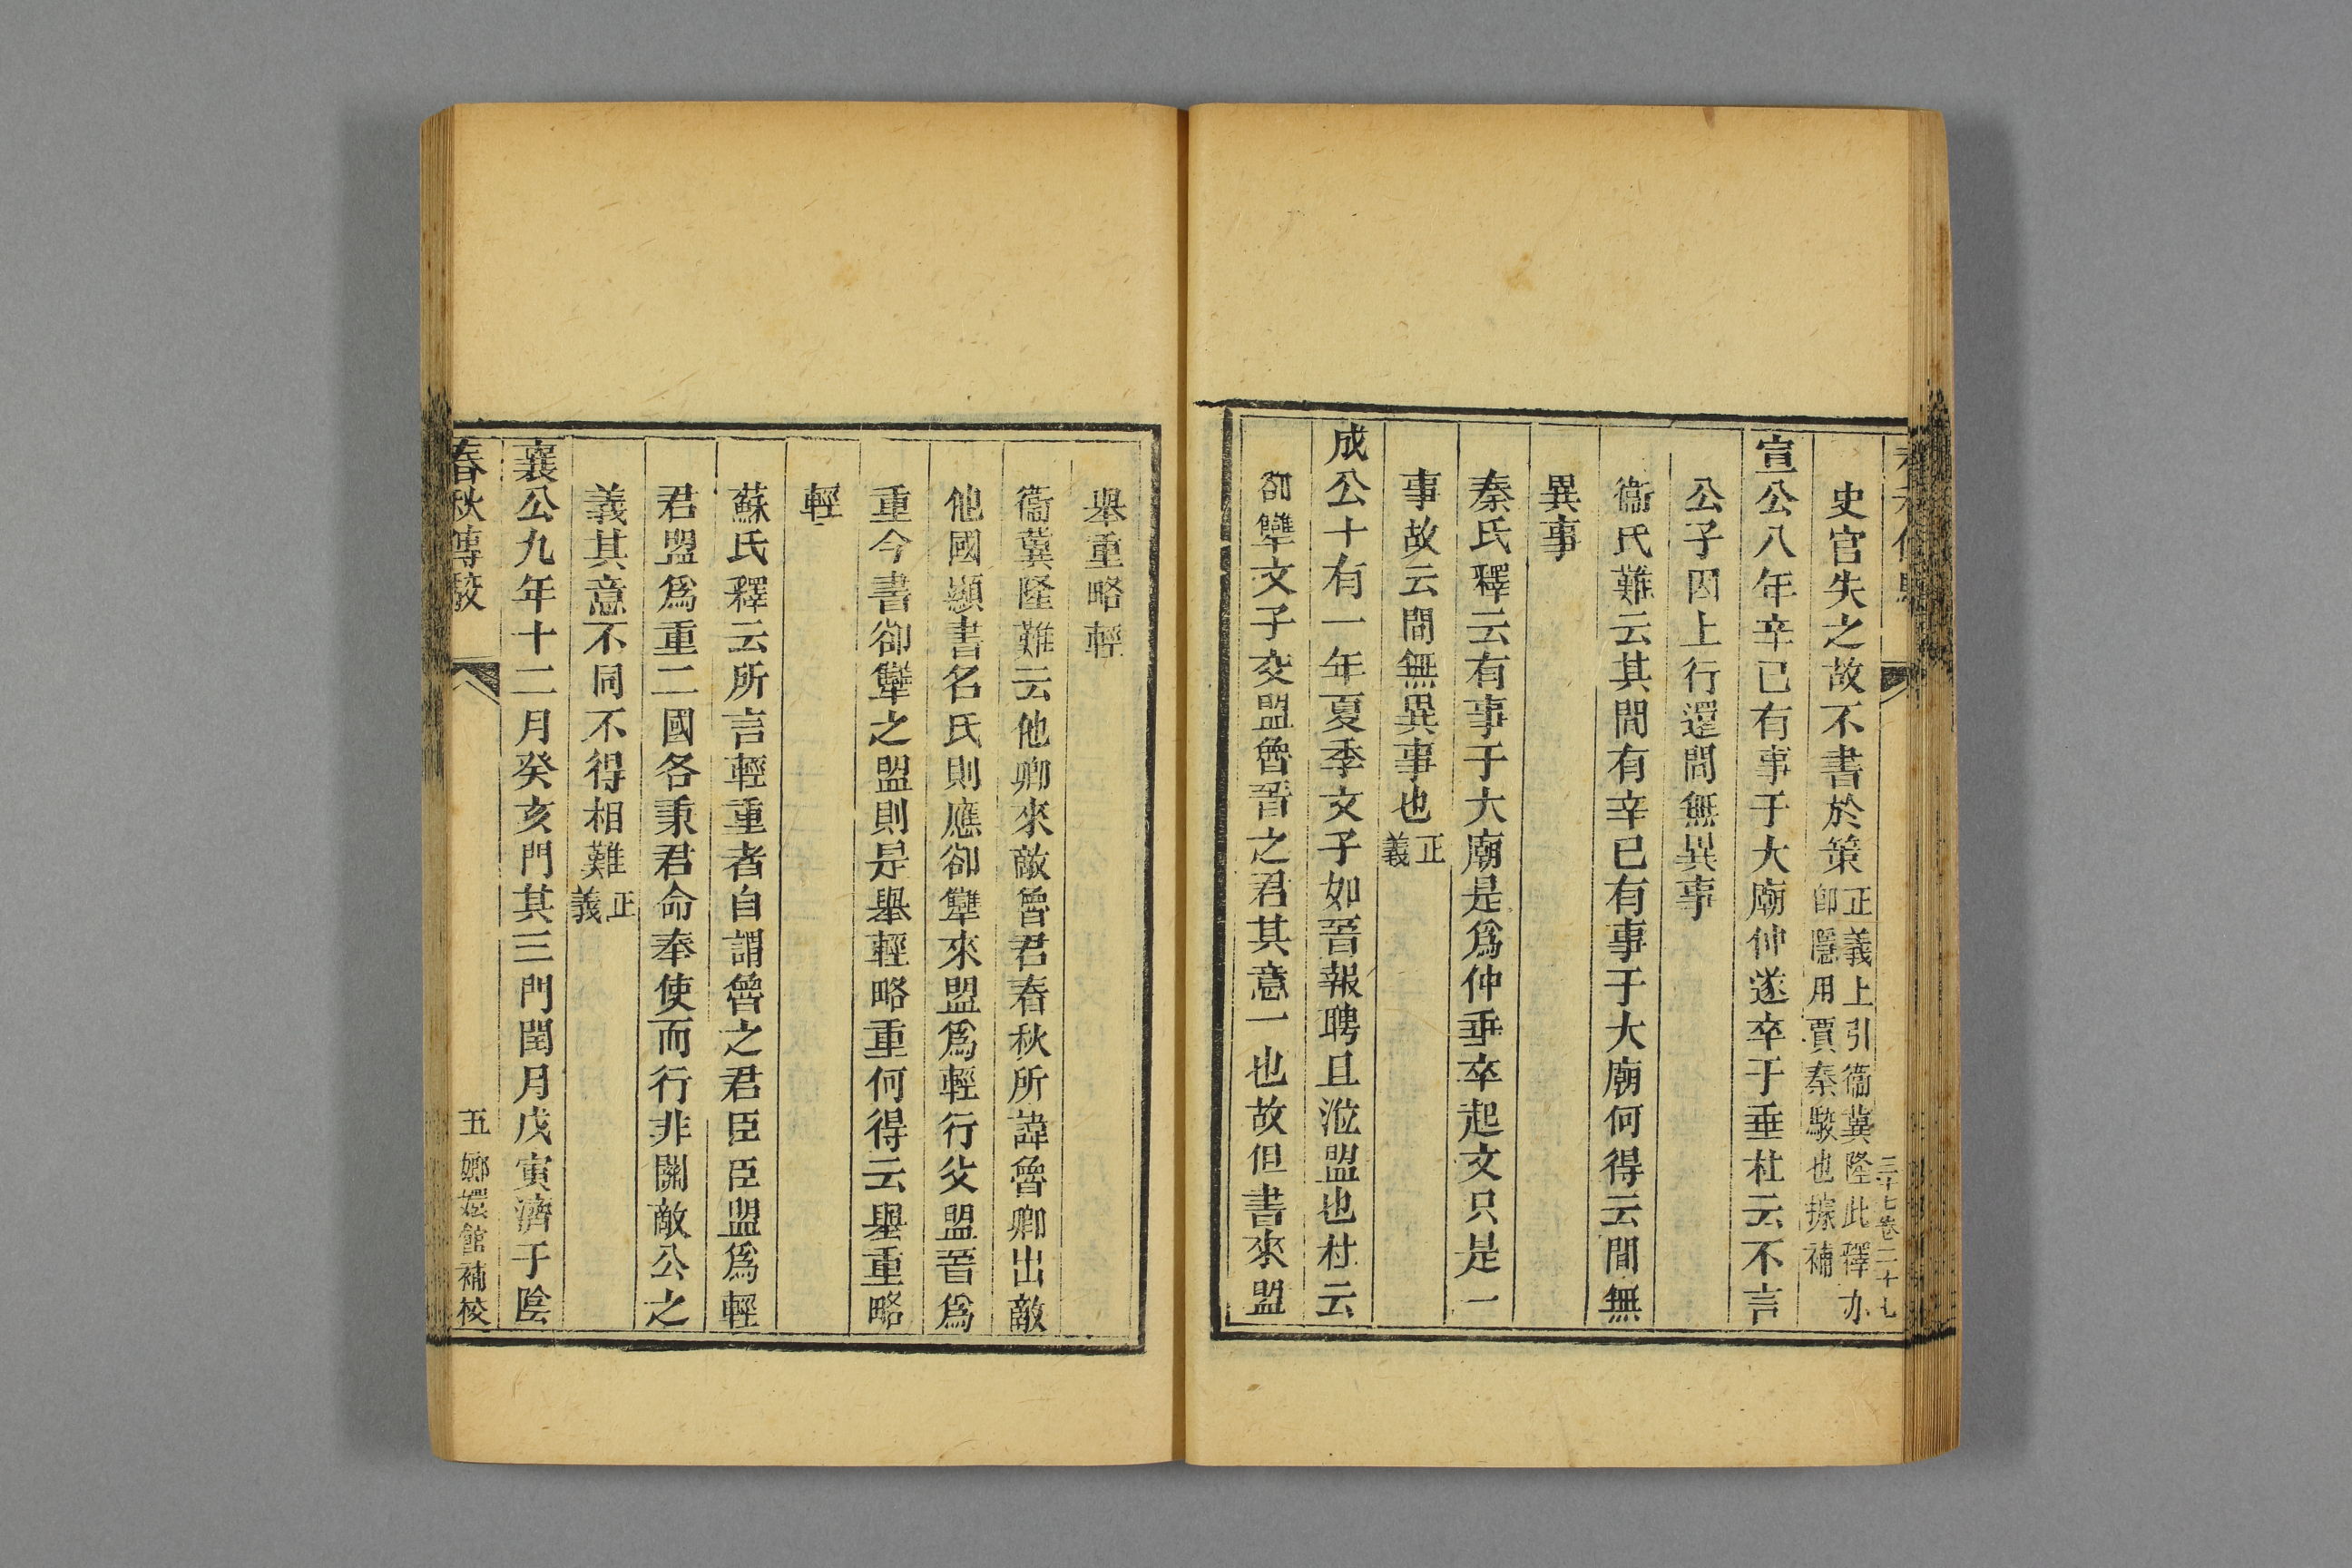 史官失之故不書於策正義上引衞冀隆此釋亦
卽隱用賈秦駮也據補
宣公八年辛巳有事于大廟仲遂卒于垂杜云不言
公子因上行還間無異事
衞氏難云其間有辛巳有事于大廟何得云間無
異事
秦氏釋云有事于大廟是爲仲垂卒起文只是一
事故云間無異事也正義
成公十有一年夏季文子如晉報聘且涖盟也杜云
郤犫文子交盟魯晉之君其意一也故但書來盟
舉重略輕
衞冀隆難云他卿來敵魯君春秋所諱魯卿出敵
他國顯書名氏則應郤犫來盟爲輕行父盟晉爲
重今書郤犫之盟則是舉輕略重何得云舉重略
輕
蘇氏釋云所言輕重者自謂魯之君臣臣盟爲輕
君盟爲重二國各秉君命奉使而行非關敵公之
義其意不同不得相難正義
襄公九年十二月癸亥門其三門閏月戊寅濟于陰
春秋傳駮
五
嫏嬛館補校